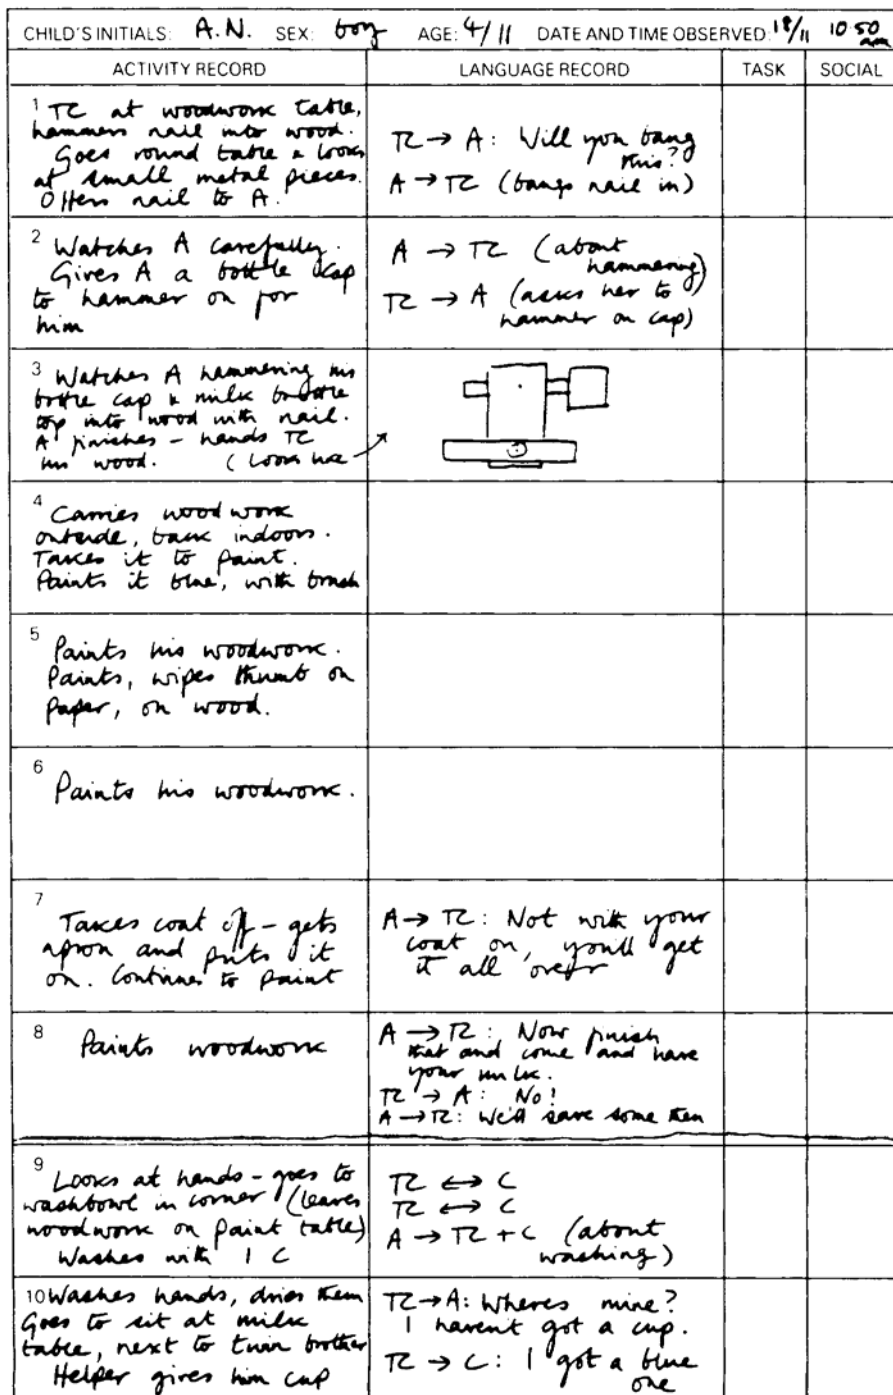 CHILD'S INITIALS: A.N. SEX: boy AGE: 4/11 DATE AND TIME OBSERVED: 18/11 10.50 am
ACTIVITY RECORD LANGUAGE RECORD TASK SOCIAL
1 TC at woodwork table,
hammers nail into wood.
Goes round table & looks
at small metal pieces.
Offers nail to A.
TC → A: Will you bang
this?
A → TC (bangs nail in)
2 Watches A carefully.
Gives A a bottle cap
to hammer on for
him
A → TC (about
hammering)
TC → A (asks her to
hammer on cap)
3 Watches A hammering his
bottle cap & milk bottle
top into wood with nail.
A finishes - hands TC
his wood. (Looks like
4 Carries woodwork
outside, back indoors.
Takes it to paint.
Paints it blue, with brush
5 Paints his woodwork.
Paints, wipes thumb on
paper, on wood.
6 Paints his woodwork.
7 Takes coat off - gets
apron and puts it
on. Continues to paint
A → TC: Not with your
coat on, you'll get
it all over
8 Paints woodwork
A → TC: Now finish
that and come and have
your milk.
TC → A: No!
A → TC: We'll save some then
9 Looks at hands - goes to
washbowl in corner (leaves
woodwork on paint table)
Washes with 1 C
TC ↔ C
TC ↔ C
A → TC + C (about
washing)
10 Washes hands, dries them
Goes to sit at milk
table, next to twin brother
Helper gives him cup
TC → A: Wheres mine?
I havent got a cup.
TC → C: I got a blue
one